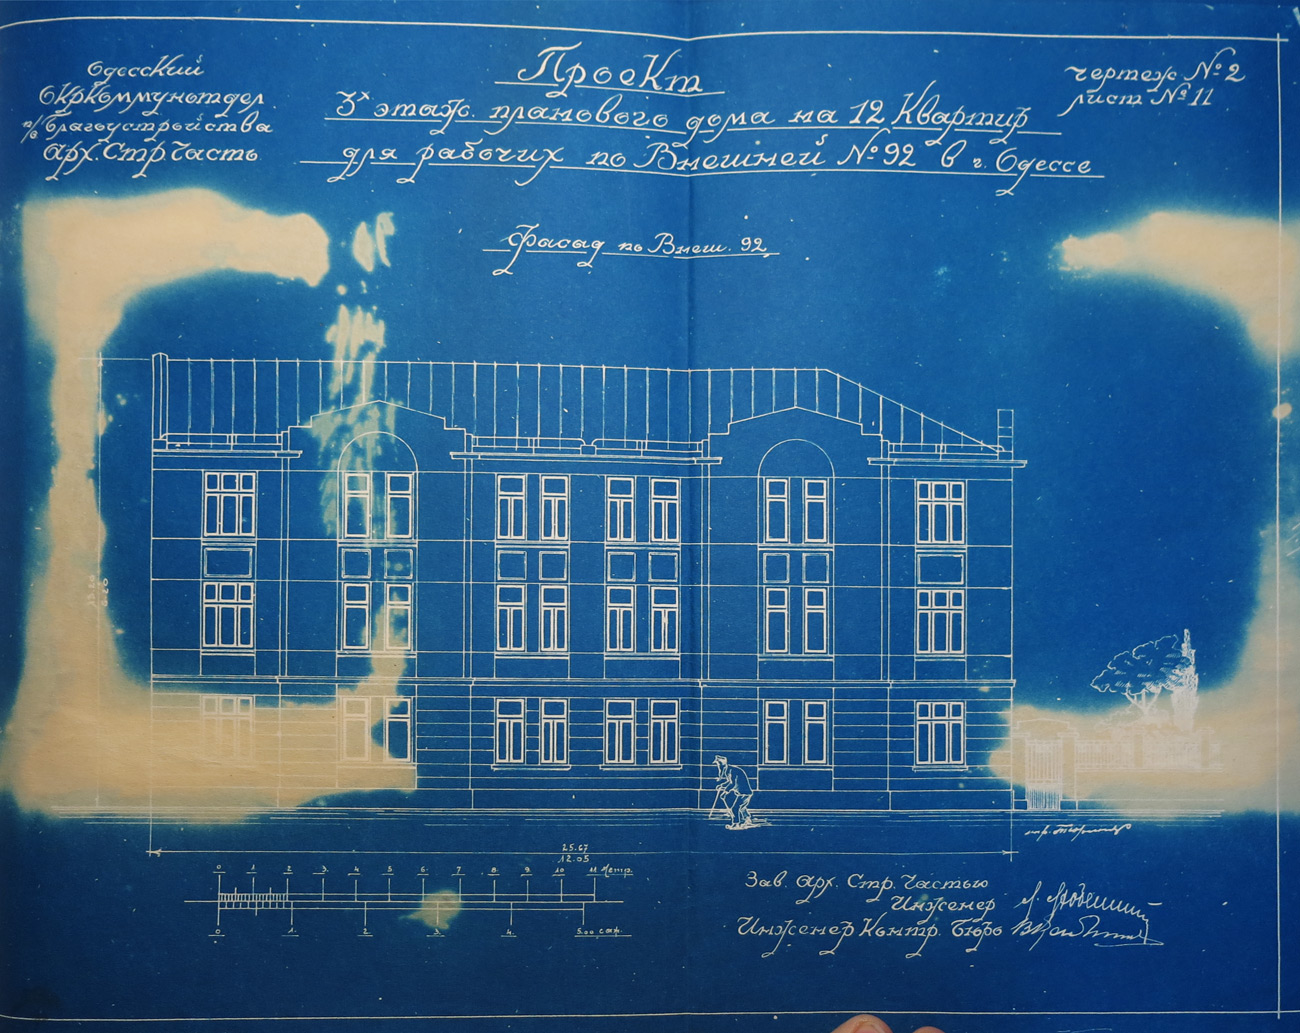 Одесский
Окркоммунотдел.
п/о Благоустройства
Арх. Стр. Часть
Проект
3х этаж. планового дома на 12 Квартир
для рабочих по Внешней № 92 в г. Одессе
чертеж № 2
лист № 11
Фасад по Внеш. 92
25.67
12.05
0 1 2 3 4 5 6 7 8 9 10 11 Метр.
0 1. 2 3. 4. 5.00 саж.
Зав. Арх. Стр. Частью
Инженер
Инженер Контр. Бюро